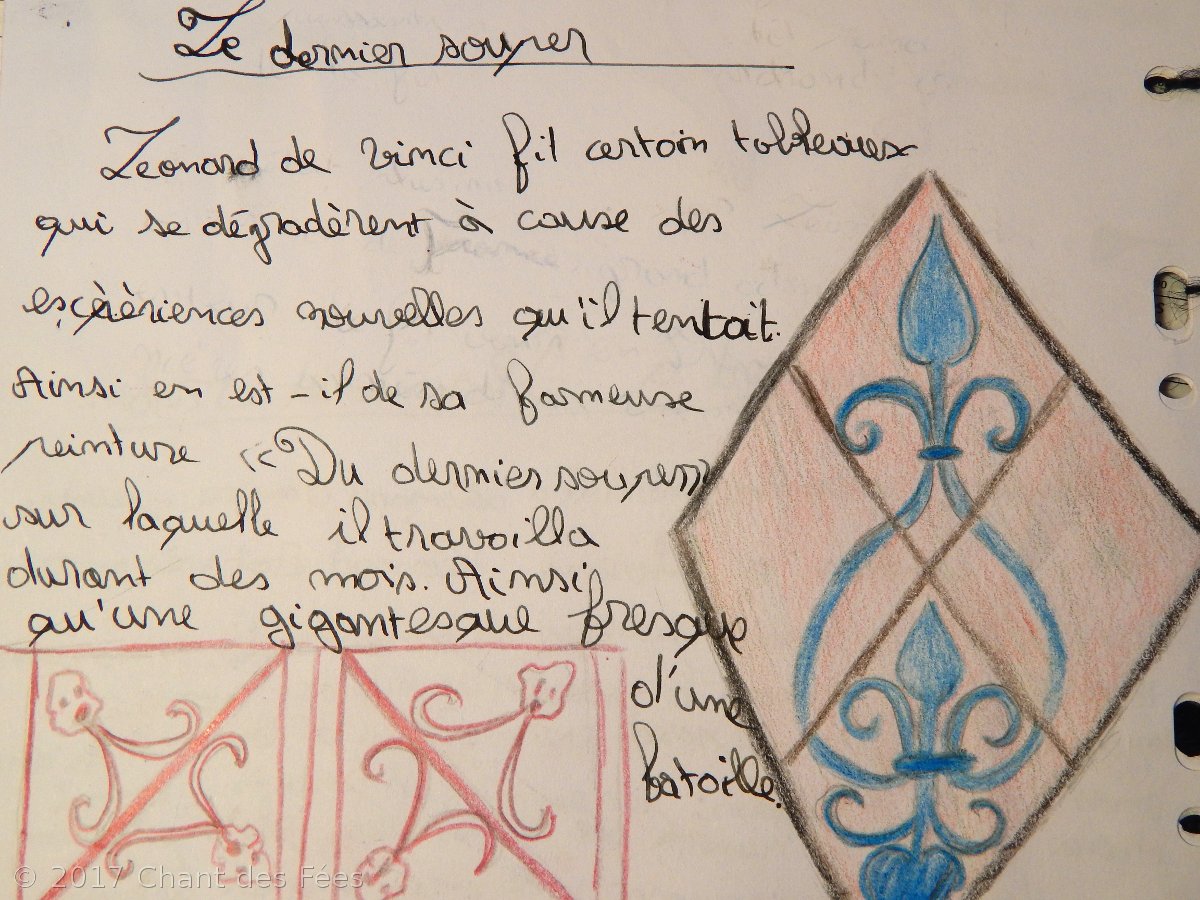 Le dernier souper
Leonard de Vinci fit certain tableaux
qui se dégradèrent à cause des
expériences nouvelles qu'il tentait.
Ainsi en est-il de sa fameuse
peinture «Du dernier souper»
sur laquelle il travailla
durant des mois. Ainsi
qu'une gigantesque fresque
d'une
bataille.
© 2017 Chant des Fées